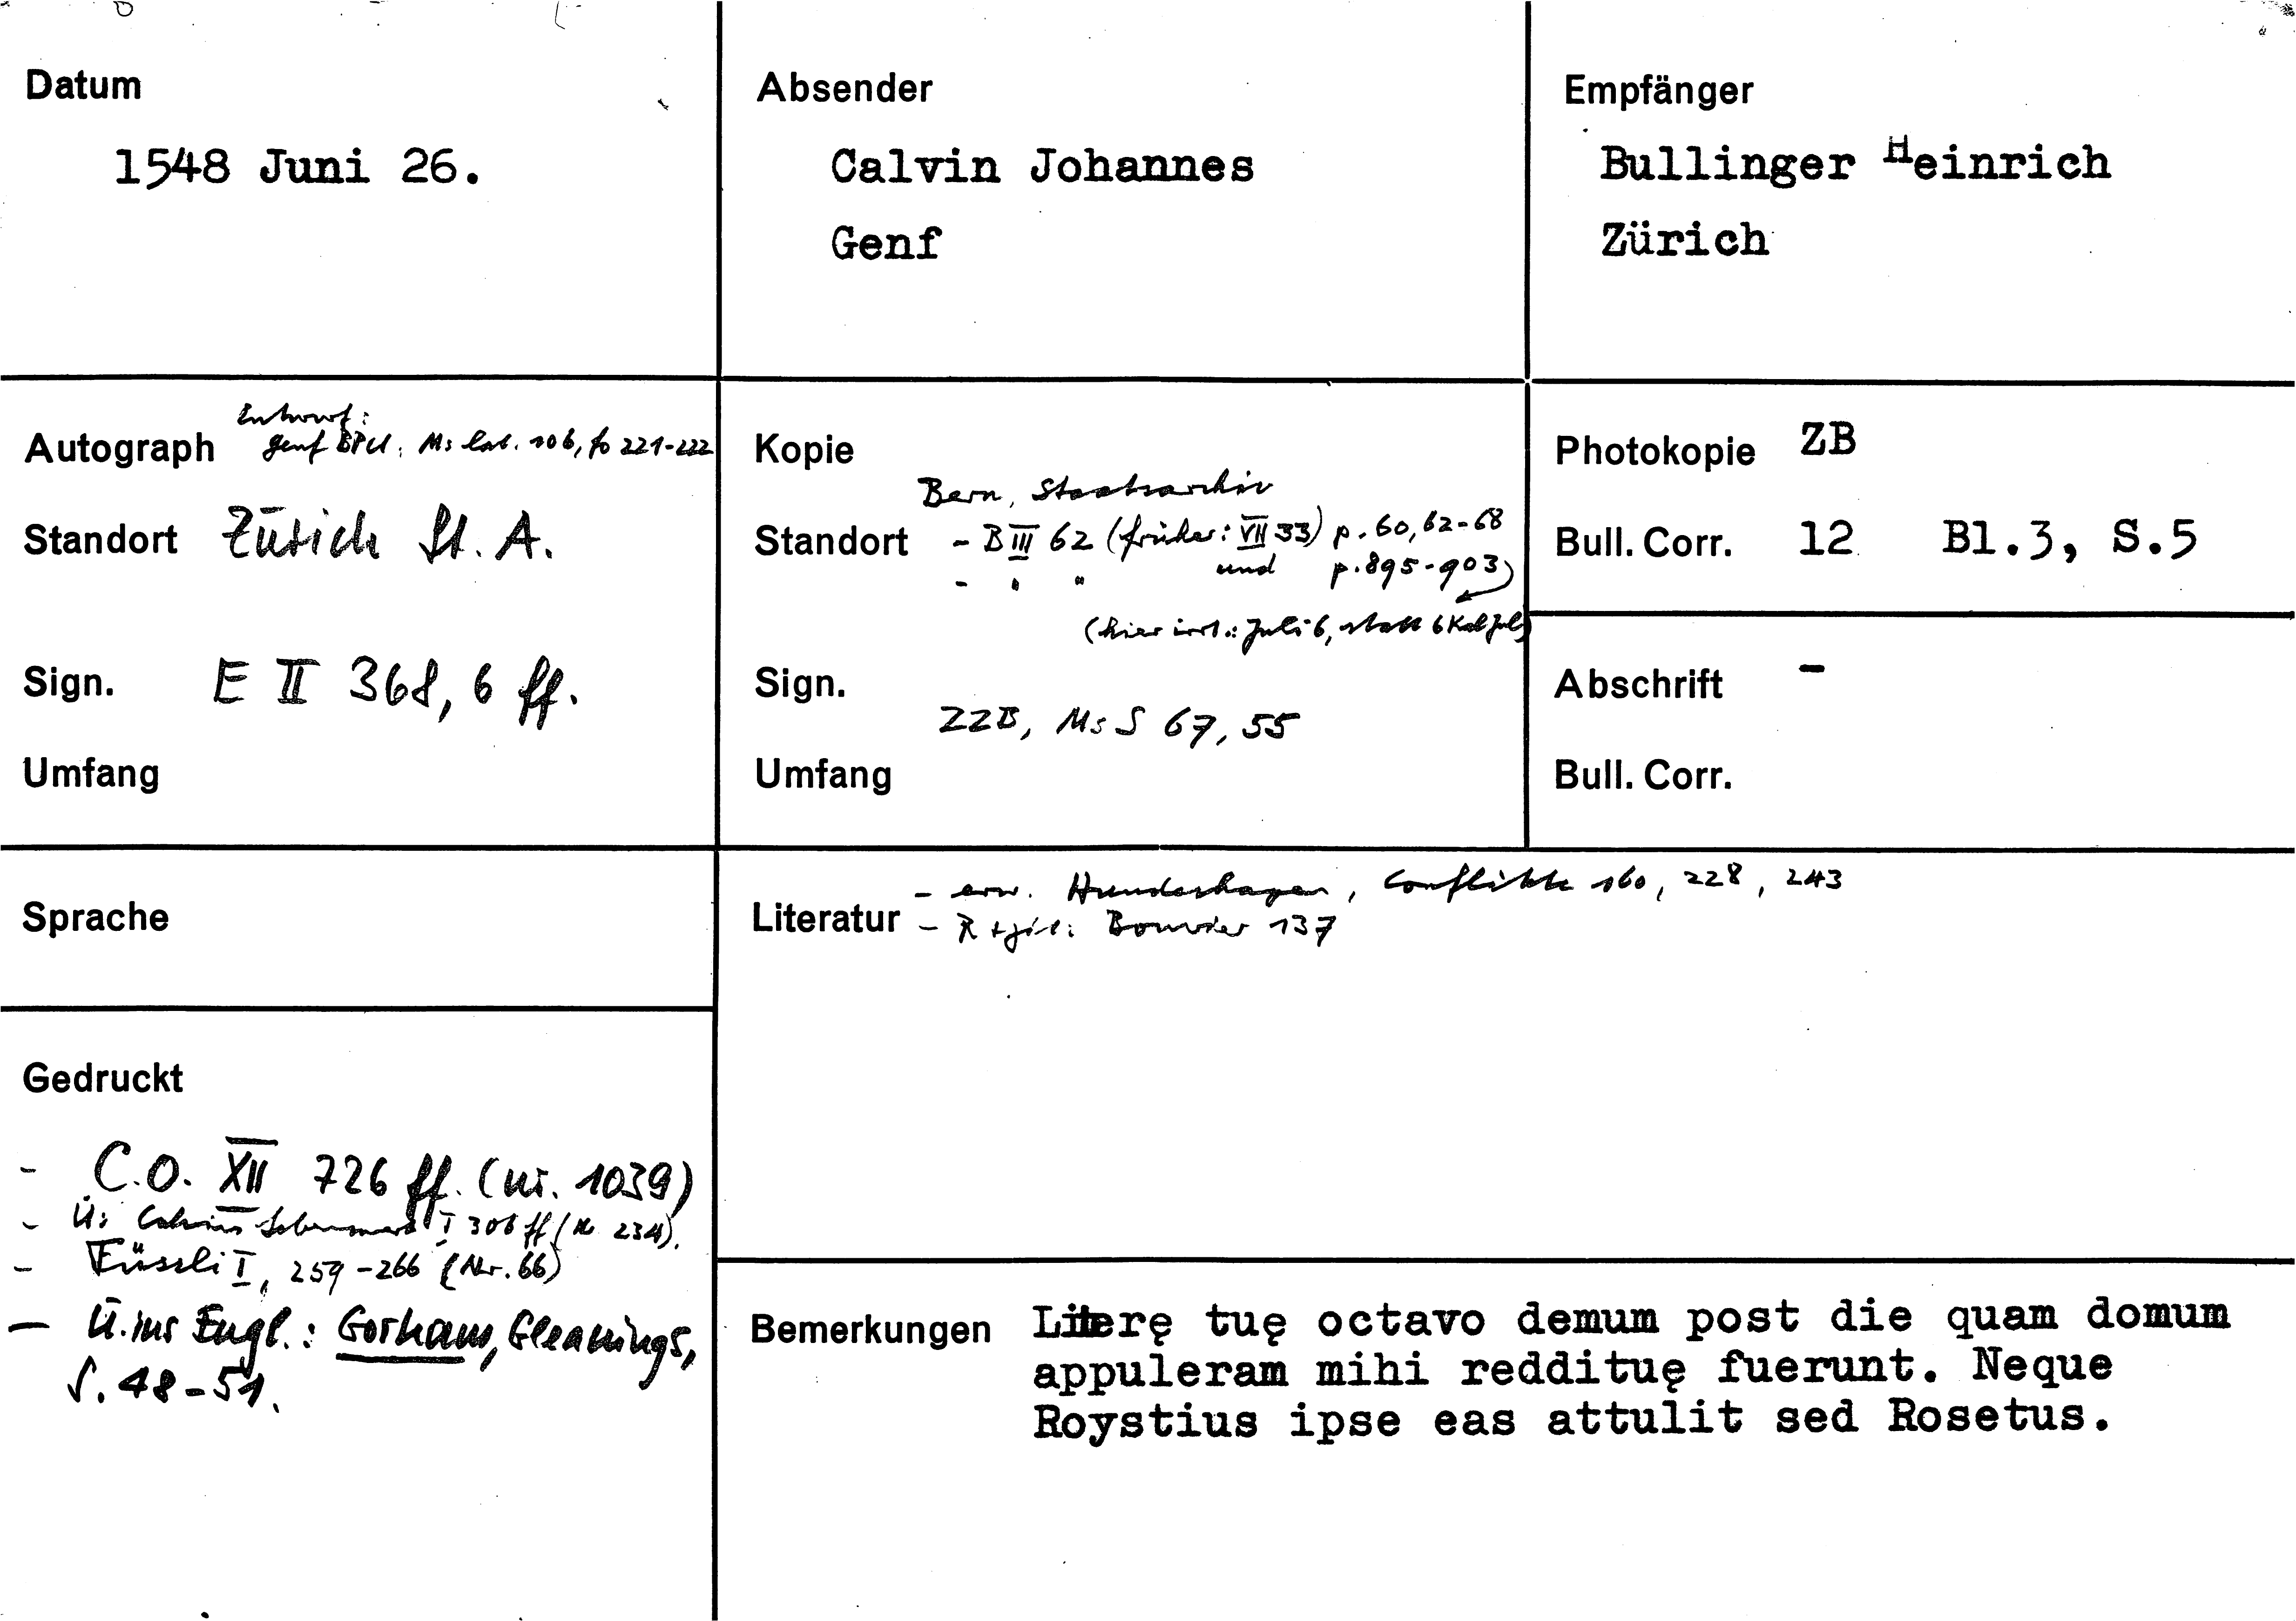 Datum
1548 Juni 26.
Absender
Calvin Johannes
Genf
Empfänger
Bullinger Heinrich
Zürich
Entwurf:
Autograph Genf BPU: Ms lat. 106, fo 221-222
Standort Zürich St. A.
Sign. E II 368, 6 ff.
Umfang
Kopie
Bern, Staatsarchiv
Standort - B III 62 (früher: VII 33) p. 60, 62-68
- " " und p. 895-903)
(hier irrt.: Juli 6, statt 6 Kal Jul)
Sign.
ZZB, Ms S 67, 55
Umfang
Photokopie ZB
Bull. Corr. 12 Bl.3, S.5
Abschrift -
Bull. Corr.
Sprache
Literatur - erw. Hundeshagen, Conflikte 160, 228, 243
- R + Bouvier 137
Gedruckt
- C.O. XII 726 ff. (Nr. 1039)
- Ü: Calvins Lebenswerk I 306 ff (N 234).
- Füssli I, 259-266 (Nr. 66)
- Ü. ins Engl.: Gorham, Gleanings,
S. 48-51.
Bemerkungen Literę tuę octavo demum post die quam domum
appuleram mihi reddituę fuerunt. Neque
Roystius ipse eas attulit sed Rosetus.